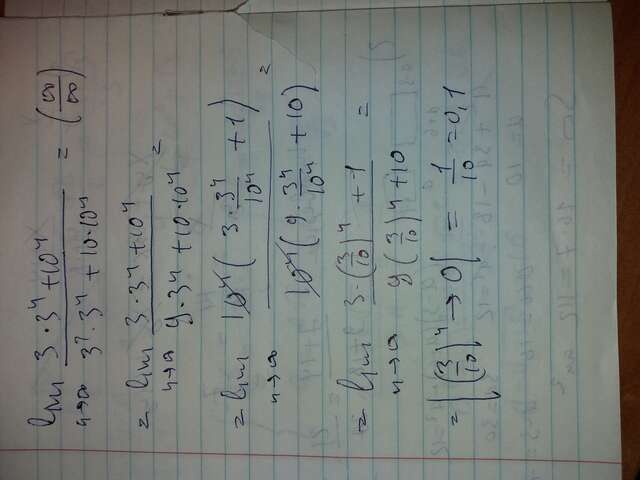 lim n→∞ (3·3ⁿ+10ⁿ)/(3²·3ⁿ+10·10ⁿ) = (∞/∞)
= lim n→∞ (3·3ⁿ+10ⁿ)/(9·3ⁿ+10·10ⁿ) =
= lim n→∞ (10ⁿ(3·3ⁿ/10ⁿ+1))/(10ⁿ(9·3ⁿ/10ⁿ+10)) =
= lim n→∞ (3·(3/10)ⁿ+1)/(9(3/10)ⁿ+10) =
= |(3/10)ⁿ→0| = 1/10 = 0,1